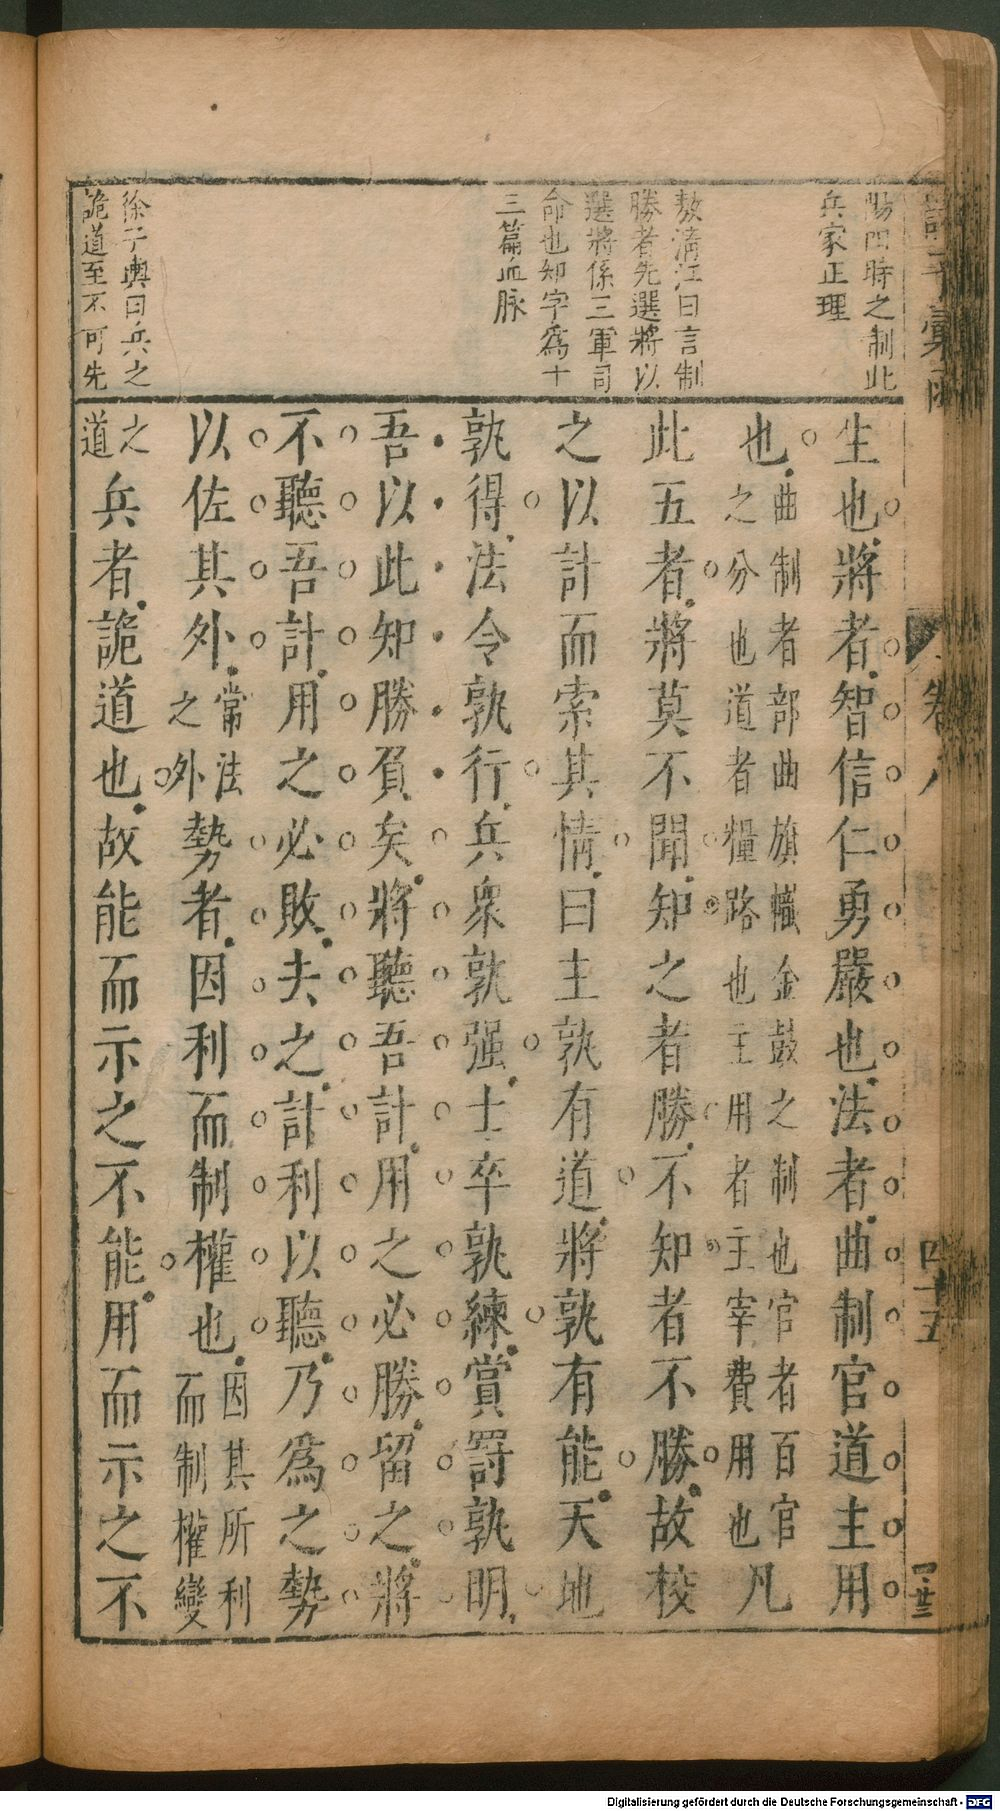 陽四時之制此
兵家正理
敖清江曰言制
勝者先選將以
選將係三軍司
命也知字爲十
三篇血脉
徐子輿曰兵之
詭道至不可先
生也將者智信仁勇嚴也法者曲制官道主用
也曲制者部曲旗幟金鼓之制也官者百官
之分也道者糧路也主用者主宰費用也凡
此五者將莫不聞知之者勝不知者不勝故校
之以計而索其情曰主孰有道將孰有能天地
孰得法令孰行兵衆孰强士卒孰練賞罰孰明
吾以此知勝負矣將聽吾計用之必勝留之將
不聽吾計用之必敗去之計利以聽乃爲之勢
以佐其外常法
之外勢者因利而制權也因其所利
而制權變
之
道兵者詭道也故能而示之不能用而示之不
卷八
四十五
Digitalisierung gefördert durch die Deutsche Forschungsgemeinschaft - DFG